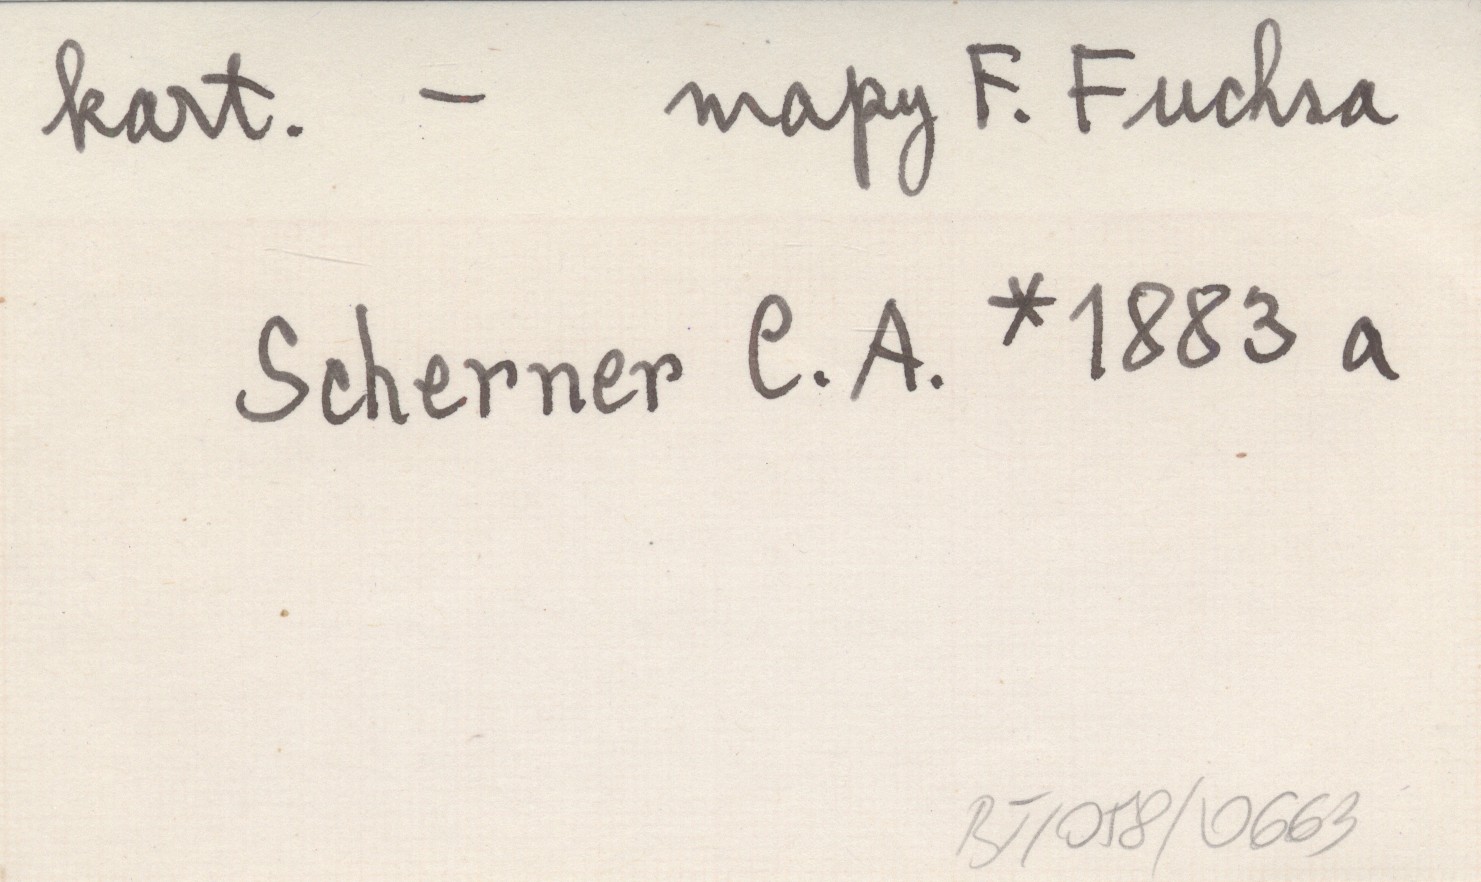 kart. - mapy F. Fuchsa
Scherner C.A. *1883 a
BJ/058/0663